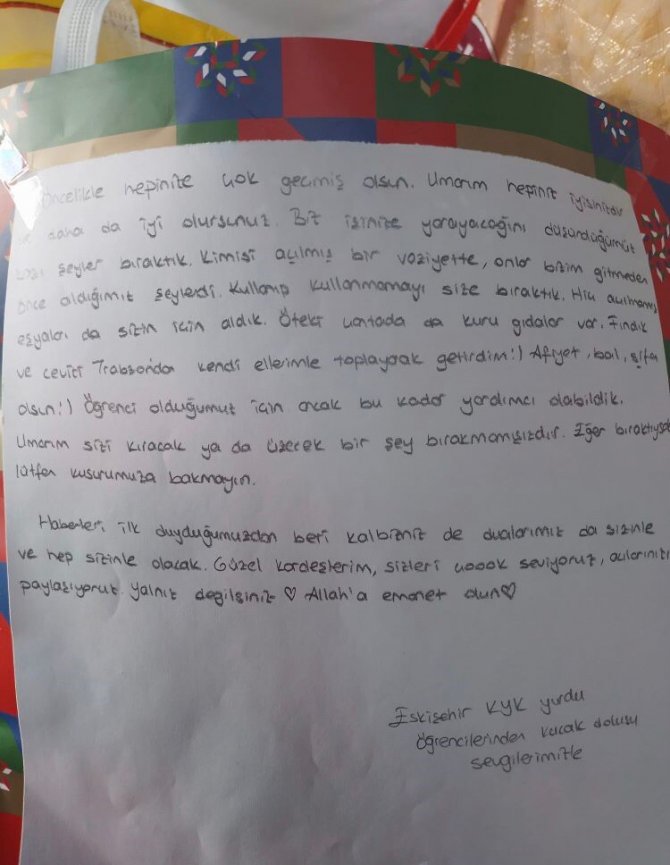 Öncelikle hepinize çok geçmiş olsun. Umarım hepiniz iyisinizdir
ve daha da iyi olursunuz. Biz işinize yarayacağını düşündüğümüz
bazı şeyler bıraktık. Kimisi açılmış bir vaziyette, onlar bizim gitmeden
önce aldığımız şeylerdi. Kullanıp kullanmamayı size bıraktık. Hiç açılmamış
eşyaları da sizin için aldık. Öteki çantada da kuru gıdalar var. Fındık
ve cevizi Trabzonda kendi ellerimle toplayarak getirdim:) Afiyet, bal, şifa
olsun:) Öğrenci olduğumuz için ancak bu kadar yardımcı olabildik.
Umarım sizi kıracak ya da üzecek bir şey bırakmamışızdır. Eğer bıraktıysak
lütfen kusurumuza bakmayın.
Haberleri ilk duyduğumuzdan beri kalbiniz de dualarımız da sizinle
ve hep sizinle olacak. Güzel kardeşlerim, sizleri çoook seviyoruz, acılarınızı
paylaşıyoruz. Yalnız değilsiniz ♡ Allah'a emanet olun♡
Eskişehir KYK yurdu
öğrencilerinden kucak dolusu
sevgilerimizle